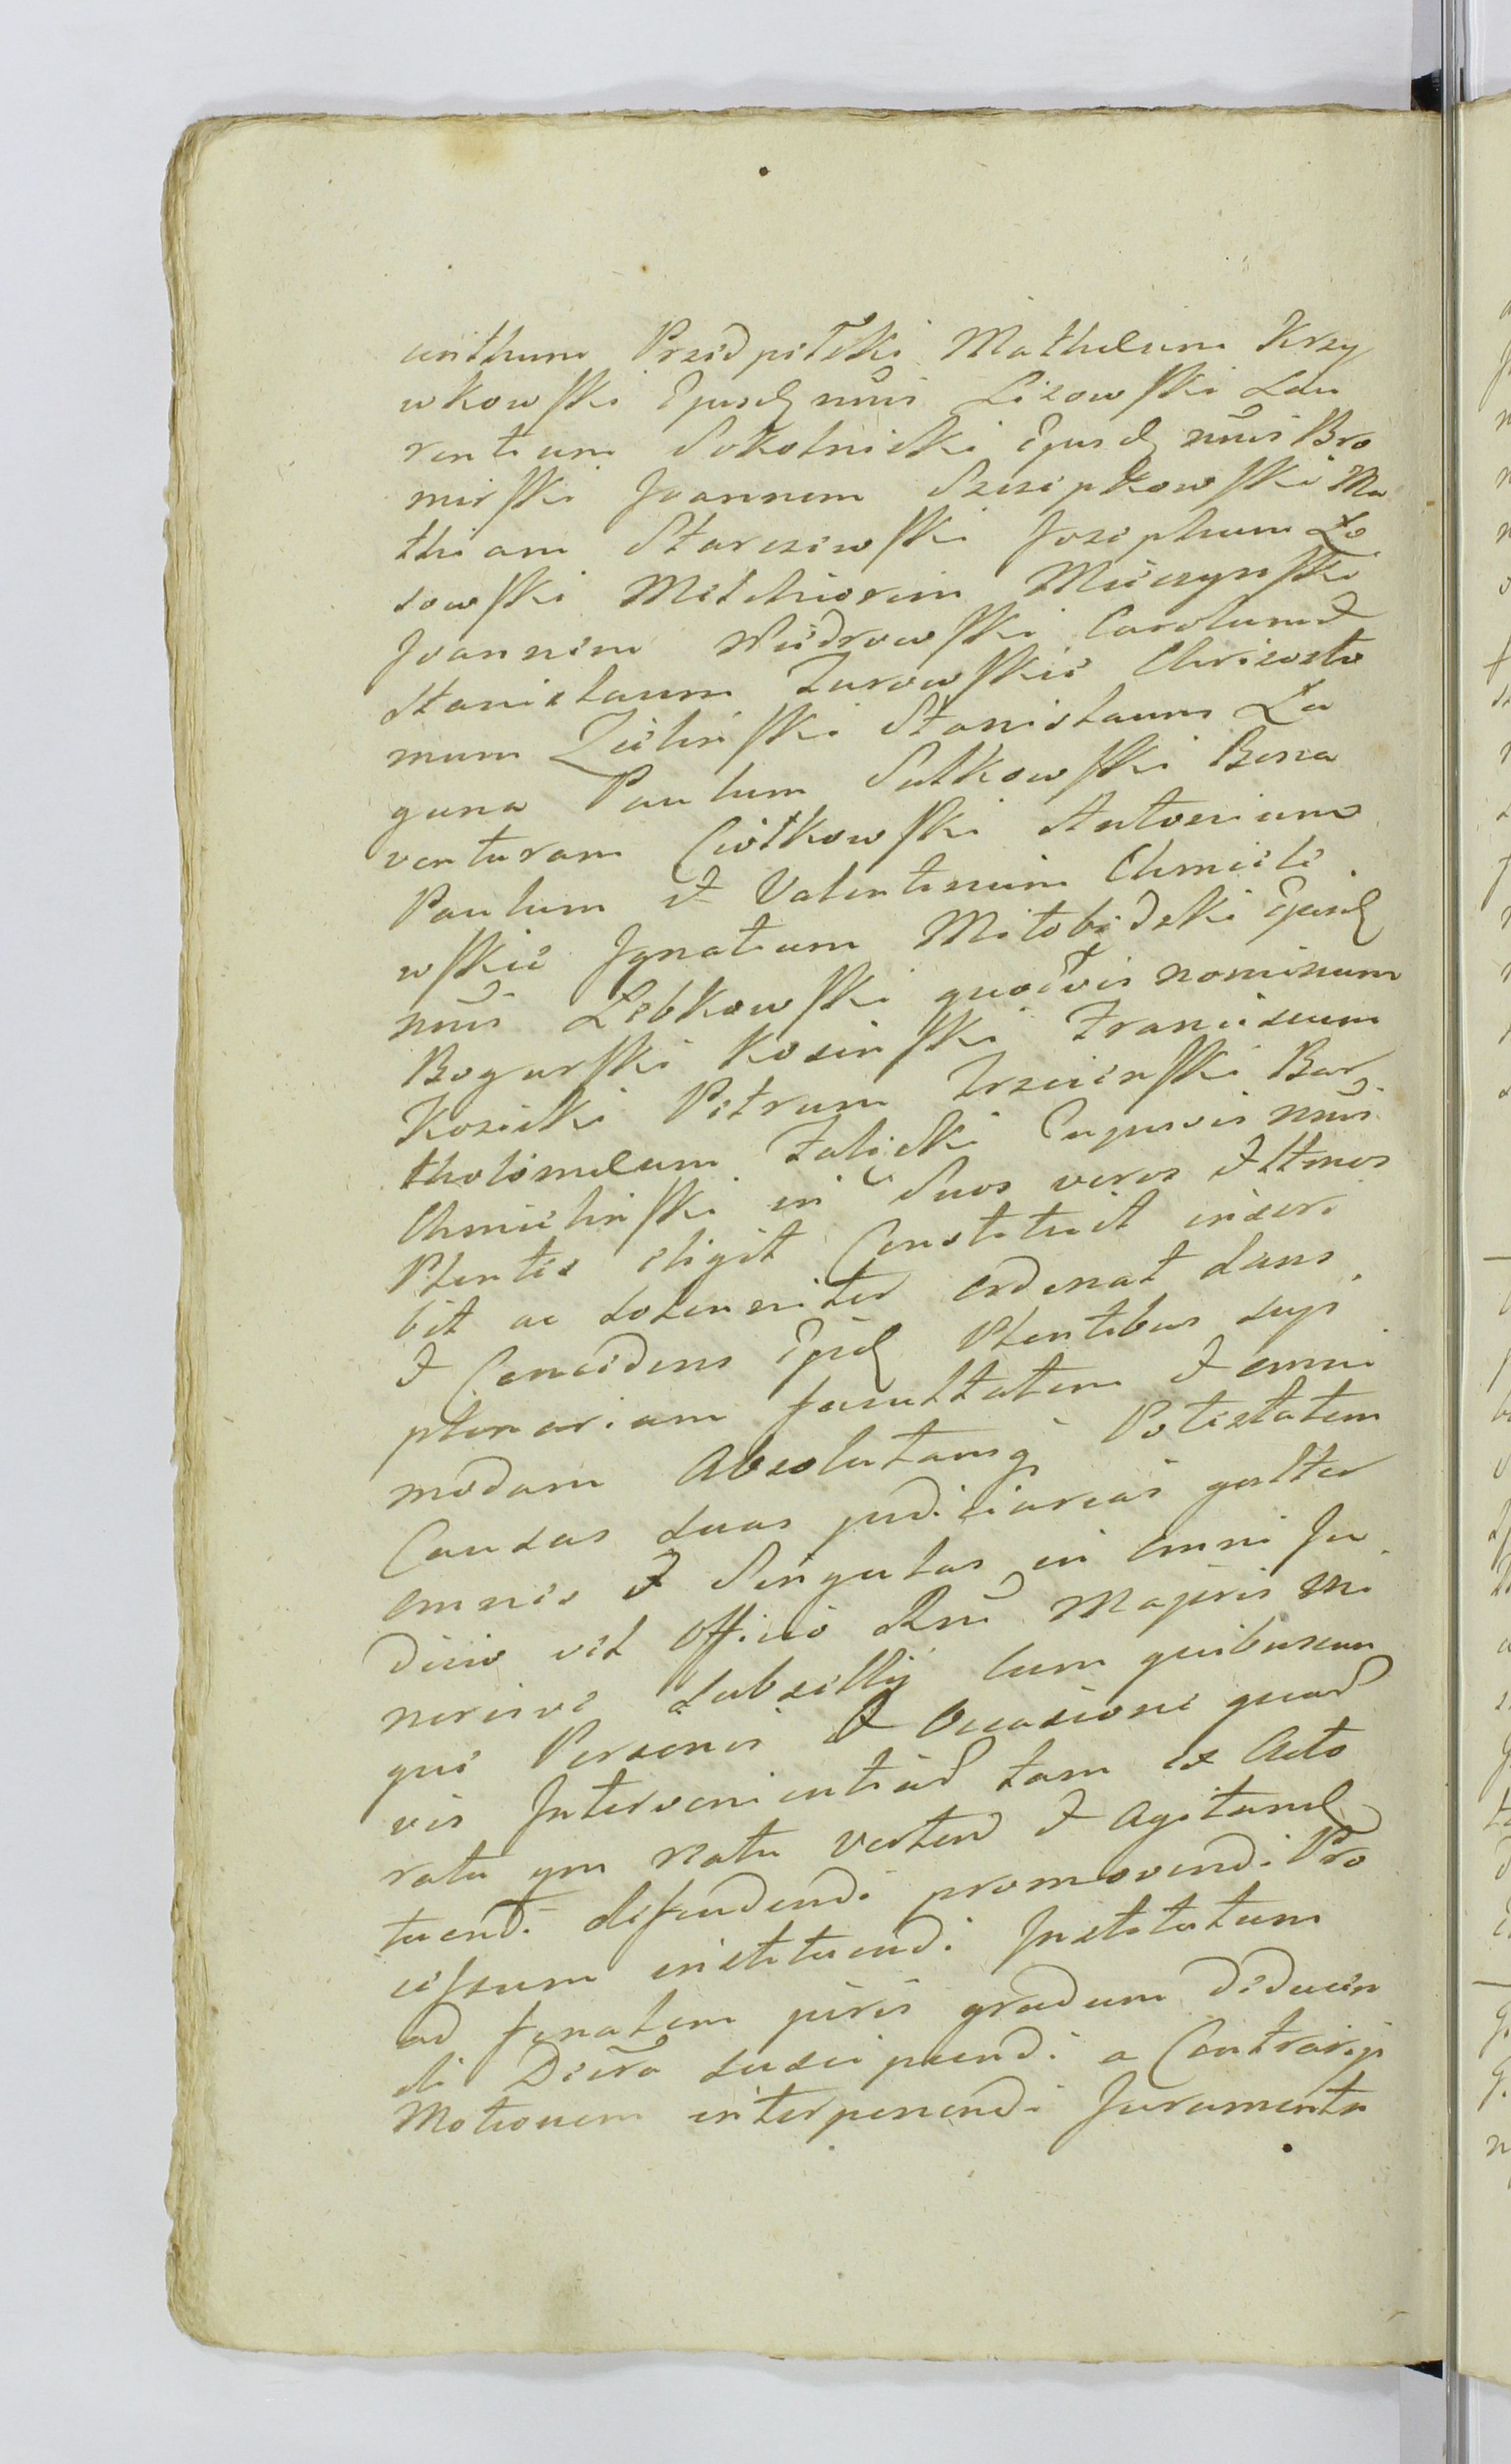 anthum Przedpełski Matheum Krzy
wkowski Ejusd nnis Lisowski Lau
rentium Sokolnicki Ejusd nnis Bro
mirski Joannem Szczepkowski Ma
thiam Starczewski Josephum Ło
sowski Melchiorem Mieczynski
Joannem Wudrowski Carolum et
Stanislaum Zurowskie Chrisosto
mum Zielinski Stanislaum La
guna Paulum Sutkowski Bona
venturam Ciotkowski Antonium
Paulum et Valentinum Chmiele
wskie Ignatium Miłobędzki Ejusd
nnis Lebkowski quodvis nominum
Bogurski Kosinski Franciscum
Kosicki Petrum Trzcinski Bar
tholomeum Zalęski Cujusvis nnis
Chmielinski in Suos veros et Ltmos
Plentes eligit Constituit inscri
bit ac solenniter ordinat dans
et Concedens Ejsd Plentibus suis
plenariam facultatem et omni
modam Absolutamq Potestatem
Causas suas judiciarias gnlter
omnes et Singulas in omni Ju
dicio vel Officio Rni Majoris Mi
norisve Subsellij cum quibuscun
que Personis et Occasione quad
vis Intervenientiad tam ex Acto
ratu qm Reatu verten et Agitand
tuendi defendendi promovendi Pro
cessum instituendi Institutum
ad finalem juris gradum deducen
di Decra suscipiendi a Contrarijs
Motionem interponendi Juramenta